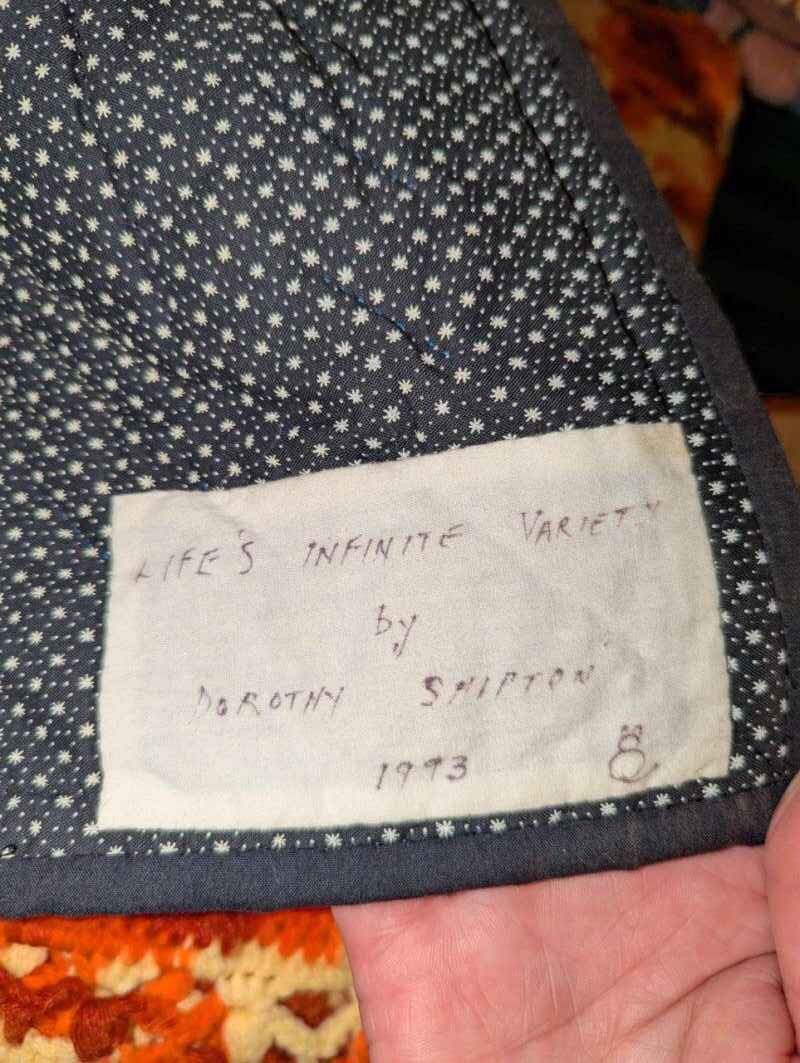 LIFE'S INFINITE VARIETY
by
DOROTHY SHIPTON
1993